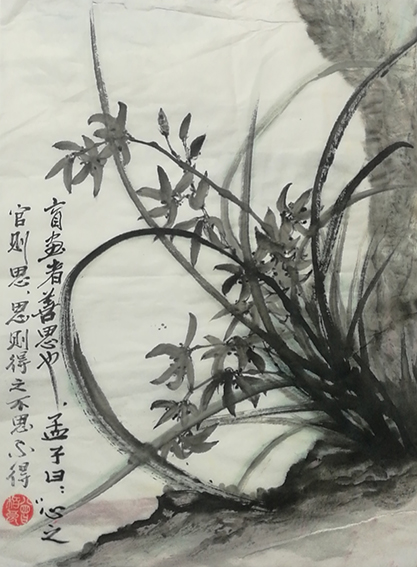 盲画者善思也，孟子曰：“心之
官则思思则得之不思不得